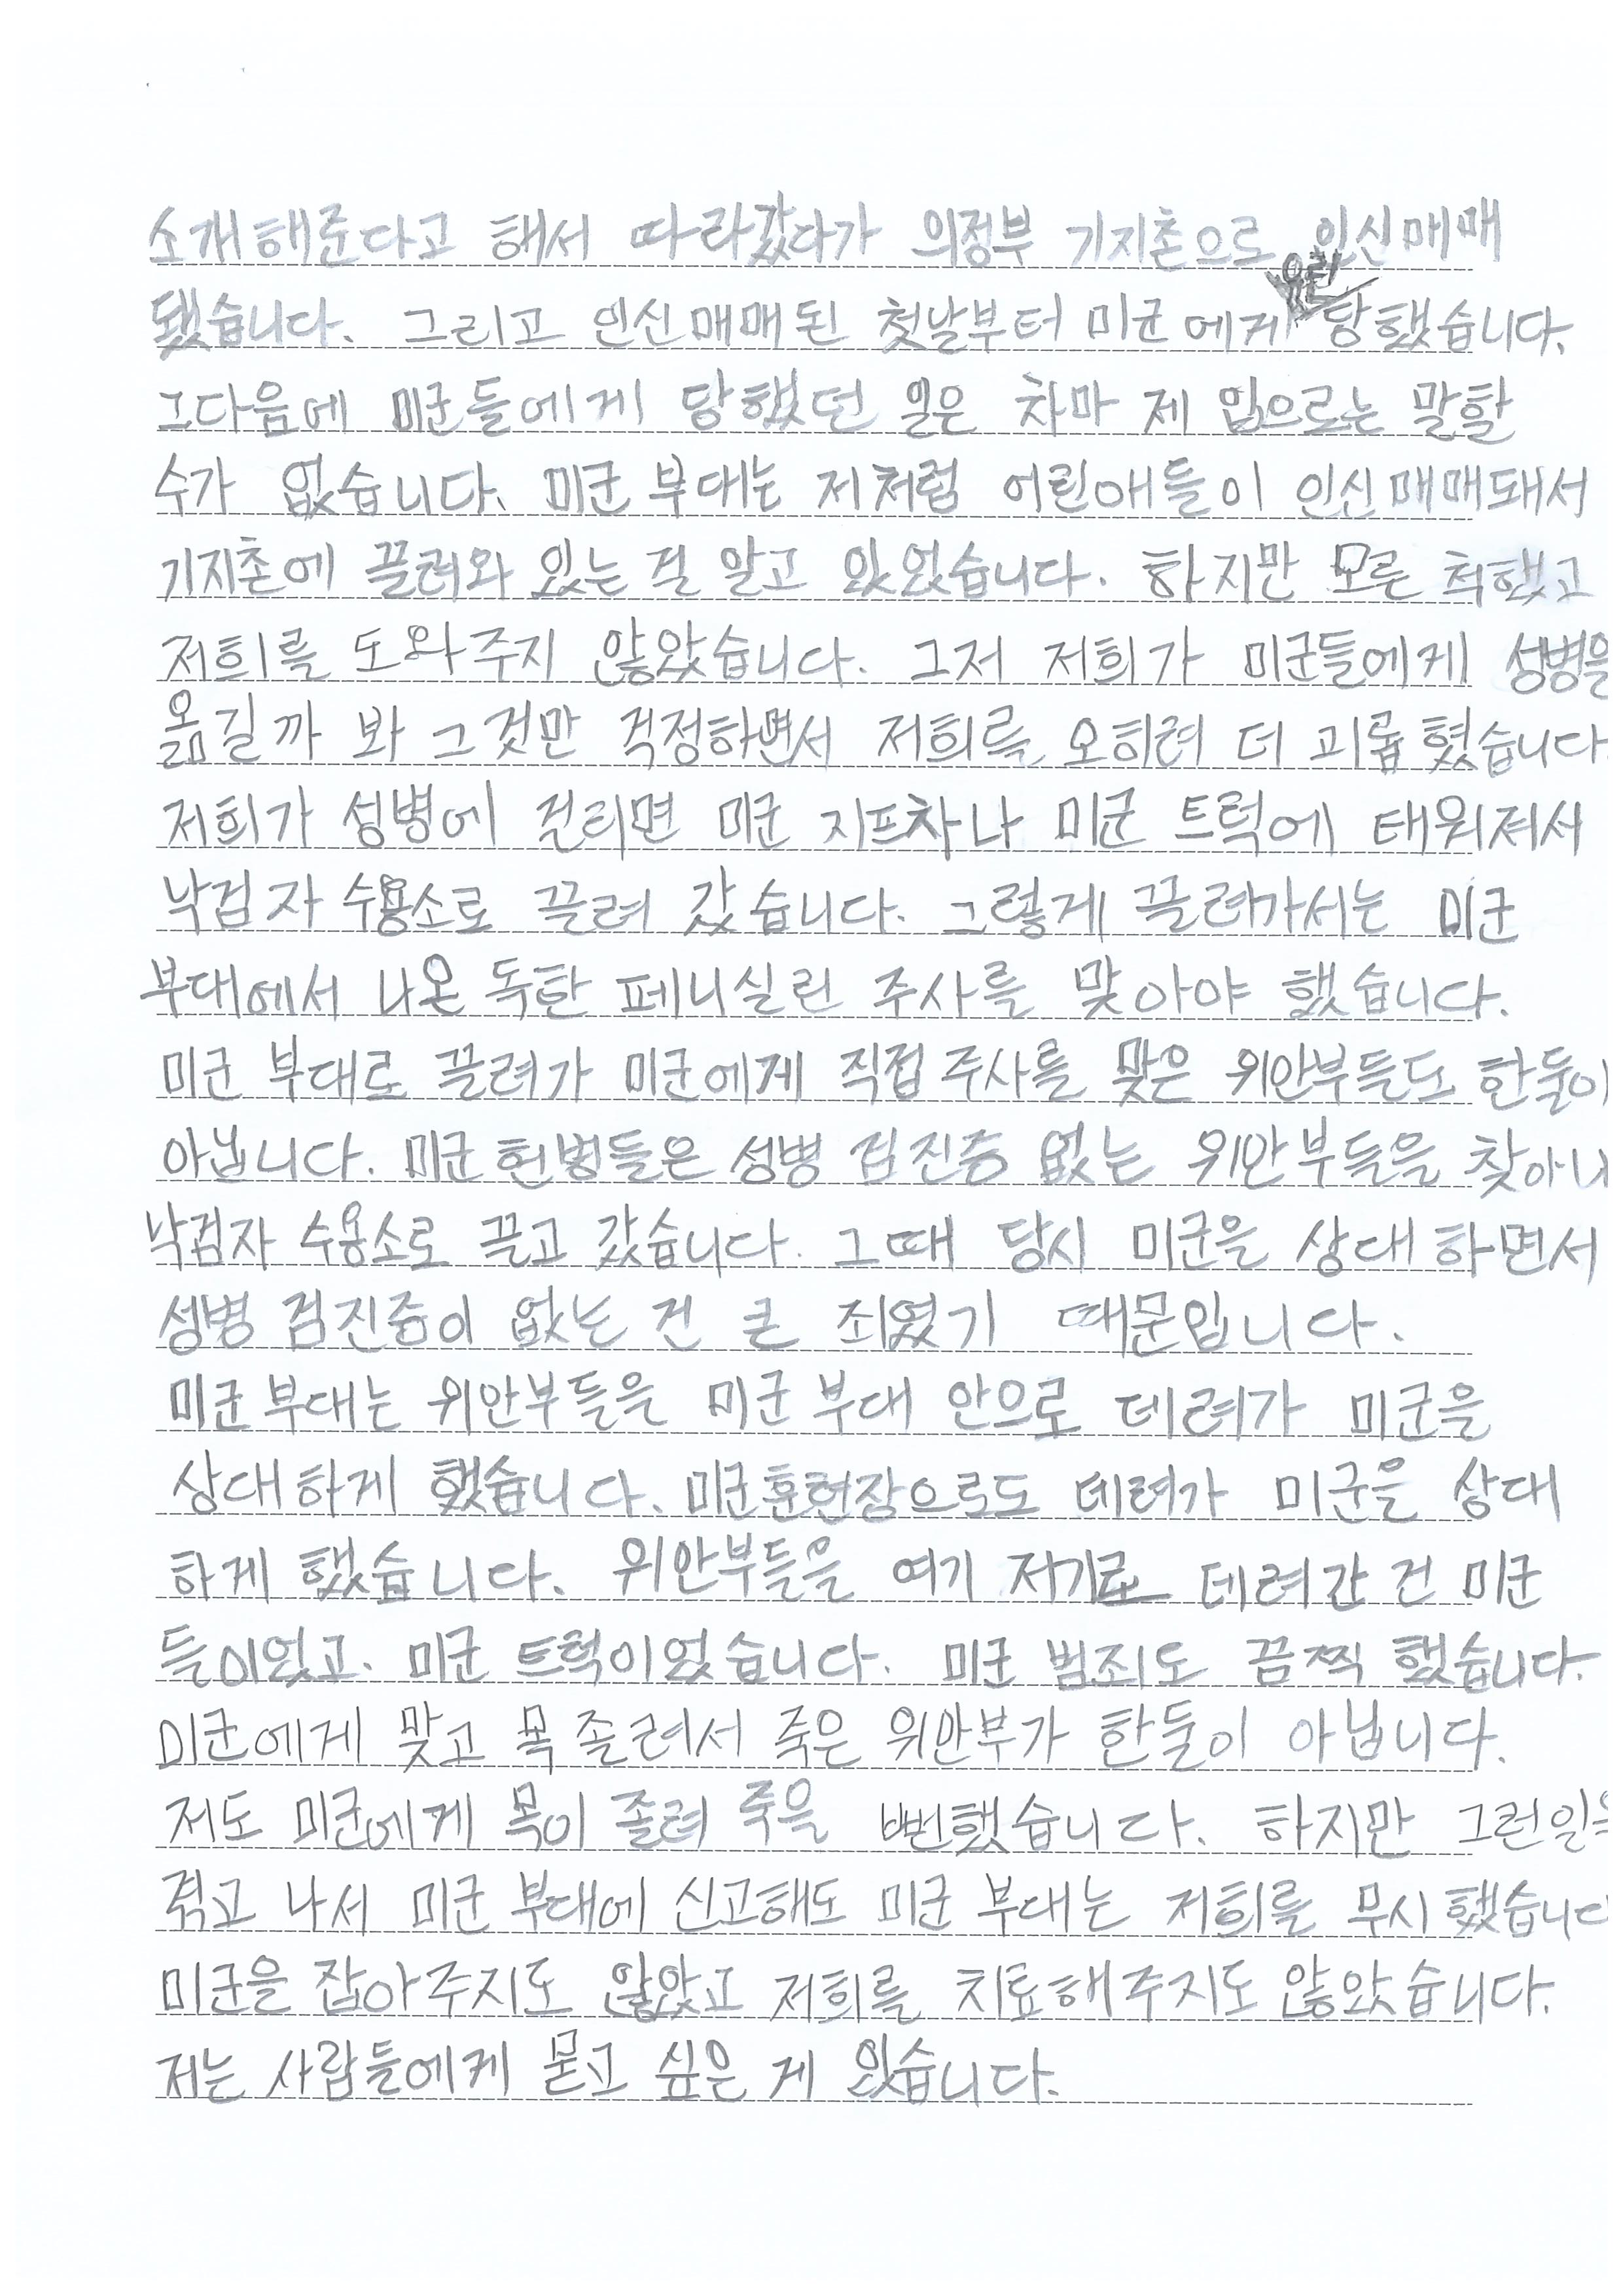 소개해준다고 해서 따라갔다가 의정부 기지촌으로 인신매매
됐습니다. 그리고 인신매매된 첫날부터 미군에게 유린 당했습니다.
그다음에 미군들에게 당했던 일은 차마 제 입으로는 말할
수가 없습니다. 미군 부대는 저처럼 어린애들이 인신매매돼서
기지촌에 끌려와 있는 걸 알고 있었습니다. 하지만 모른 척했고
저희를 도와주지 않았습니다. 그저 저희가 미군들에게 성병을
옮길까 봐 그것만 걱정하면서 저희를 오히려 더 괴롭혔습니다
저희가 성병에 걸리면 미군 지프차나 미군 트럭에 태워져서
낙검자 수용소로 끌려 갔습니다. 그렇게 끌려가서는 미군
부대에서 나온 독한 페니실린 주사를 맞아야 했습니다.
미군 부대로 끌려가 미군에게 직접 주사를 맞은 위안부들도 한둘이
아닙니다. 미군 헌병들은 성병 검진증 없는 위안부들을 찾아내
낙검자 수용소로 끌고 갔습니다. 그때 당시 미군을 상대하면서
성병 검진증이 없는 건 큰 죄였기 때문입니다.
미군 부대는 위안부들을 미군 부대 안으로 데려가 미군을
상대하게 했습니다. 미군훈련장으로도 데려가 미군을 상대
하게 했습니다. 위안부들을 여기 저기로 데려간 건 미군
들이었고. 미군 트럭이었습니다. 미군 범죄도 끔찍 했습니다.
미군에게 맞고 목 졸려서 죽은 위안부가 한둘이 아닙니다.
저도 미군에게 목이 졸려 죽을 뻔했습니다. 하지만 그런일을
겪고 나서 미군 부대에 신고해도 미군 부대는 저희를 무시했습니다
미군을 잡아주지도 않았고 저희를 치료해주지도 않았습니다.
저는 사람들에게 묻고 싶은 게 있습니다.